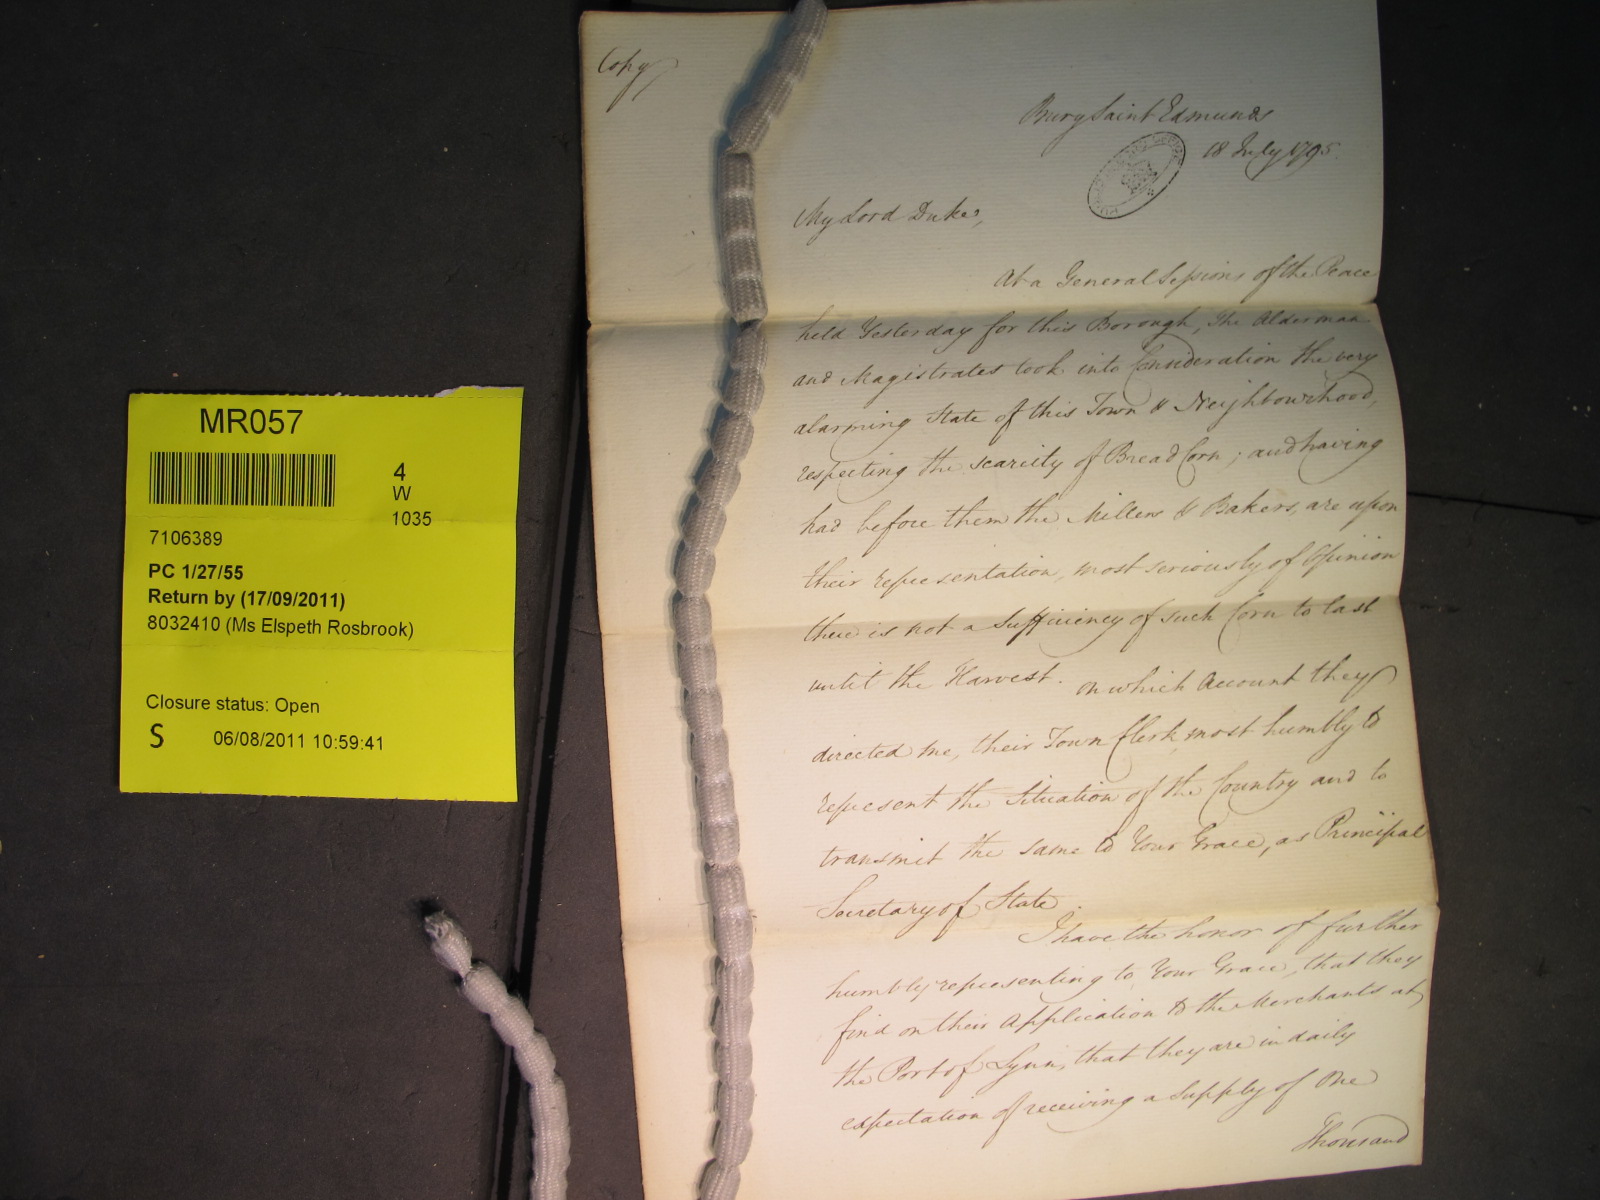 MR057
4
W
1035
7106389
PC 1/27/55
Return by (17/09/2011)
8032410 (Ms Elspeth Rosbrook)
Closure status: Open
S 06/08/2011 10:59:41
Copy
Bury Saint Edmunds
18 July 1795.
My Lord Duke,
At a General Sessions of the Peace
held Yesterday for this Borough, The Alderman
and Magistrates took into Consideration the very
alarming State of this Town & Neighbourhood,
respecting the scarcity of Bread Corn; and having
had before them the Millers & Bakers, are upon
their representation, most seriously of Opinion
there is not a Sufficiency of such Corn to last
until the Harvest. On which Account they
directed me, their Town Clerk most humbly to
represent the Situation of the Country and to
transmit the same to Your Grace, as Principal
Secretary of State.
I have the honor of further
humbly representing to Your Grace, that they
find on their Application to the Merchants at
the Port of Lynn, that they are in daily
expectation of receiving a Supply of One
Thousand